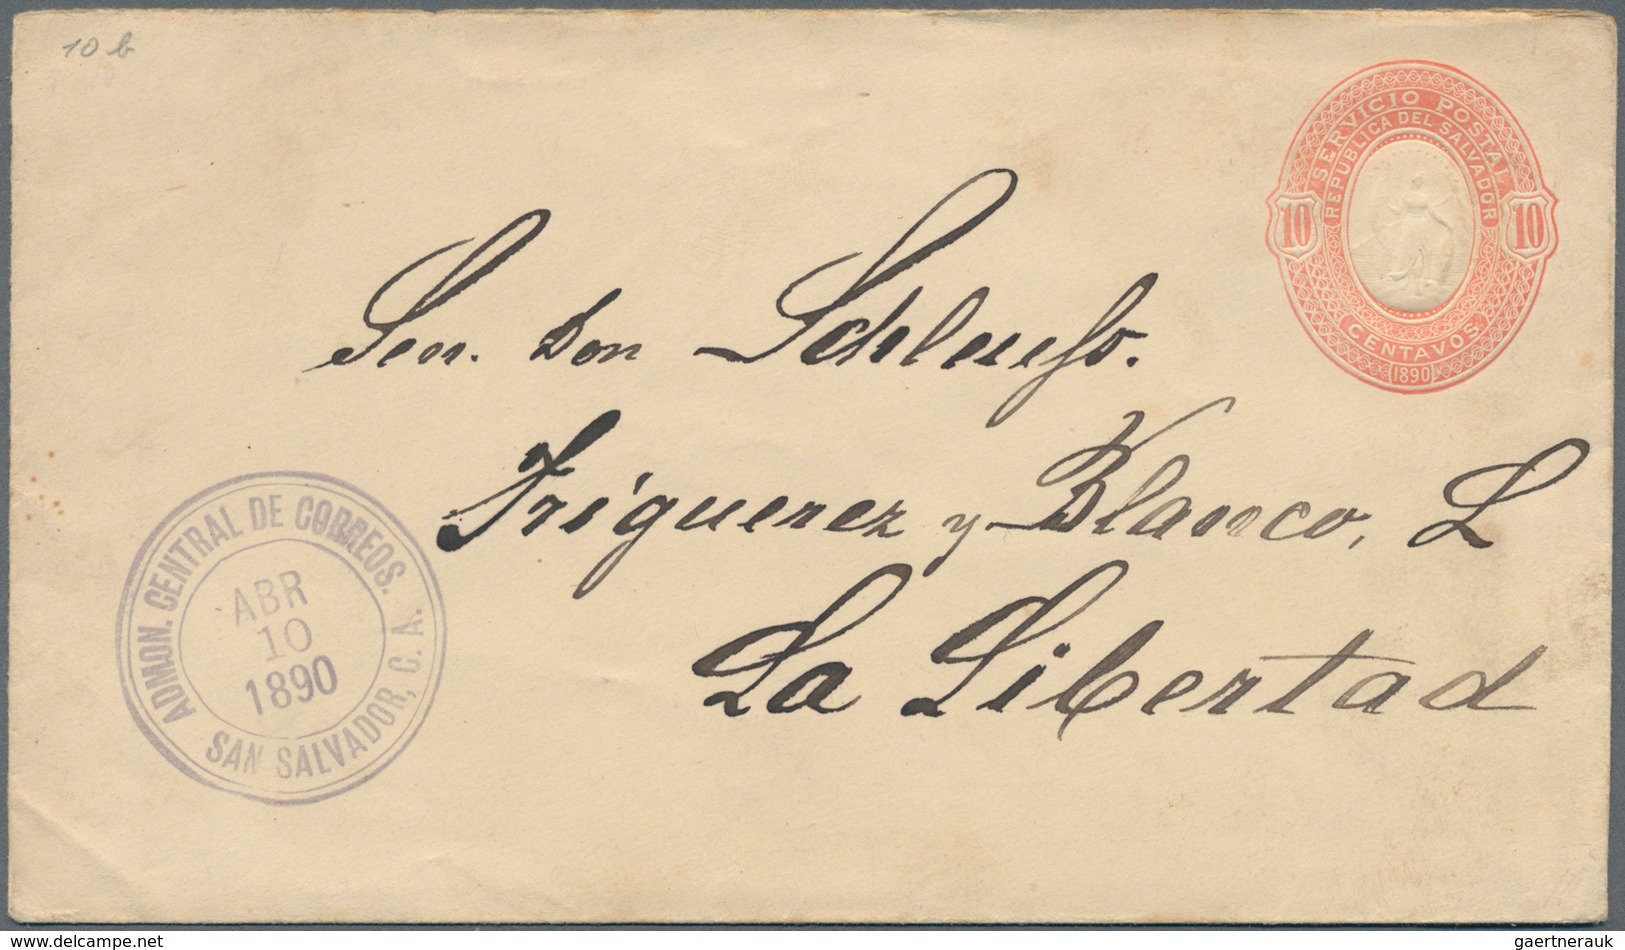 10 b
SERVICIO POSTAL
REPUBLICA DEL SALVADOR
10 10
CENTAVOS
1890
Sen. Don Schleufo.
Triguerez y Blanco, L
La Libertad
ADMON. CENTRAL DE CORREOS.
ABR
10
1890
SAN SALVADOR, C. A.
delcampe.net
gaertnerauk